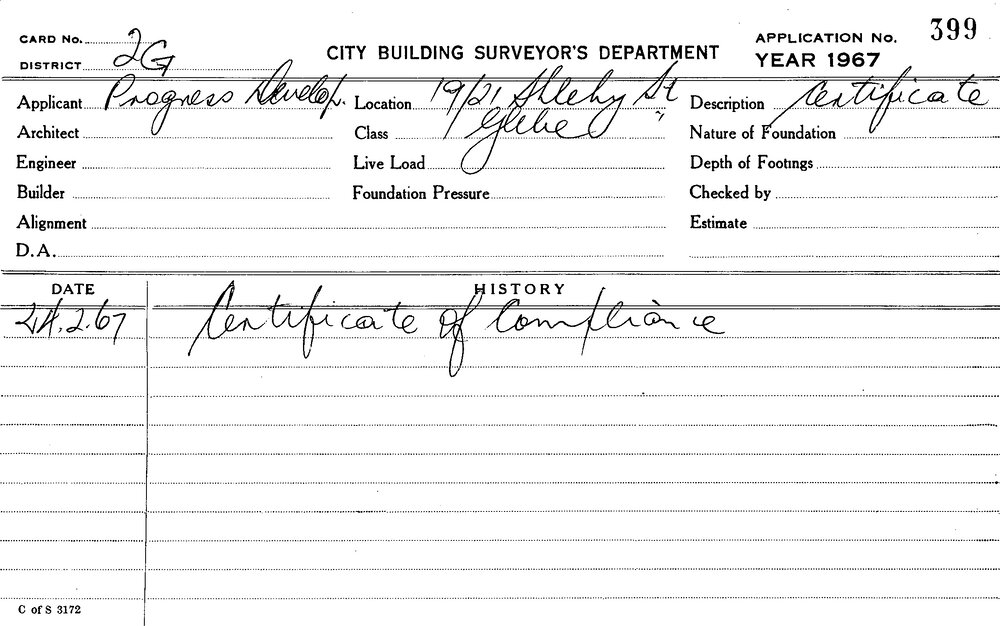 CARD No.
DISTRICT 2G
CITY BUILDING SURVEYOR'S DEPARTMENT
APPLICATION No. 399
YEAR 1967
Applicant Progress Develop. Location 19/21 St Description Certificate
Architect Class Glebe " Nature of Foundation
Engineer Live Load Depth of Footings
Builder Foundation Pressure Checked by
Alignment Estimate
D.A.
DATE HISTORY
24.2.67 Certificate of Compliance
C of S 3172